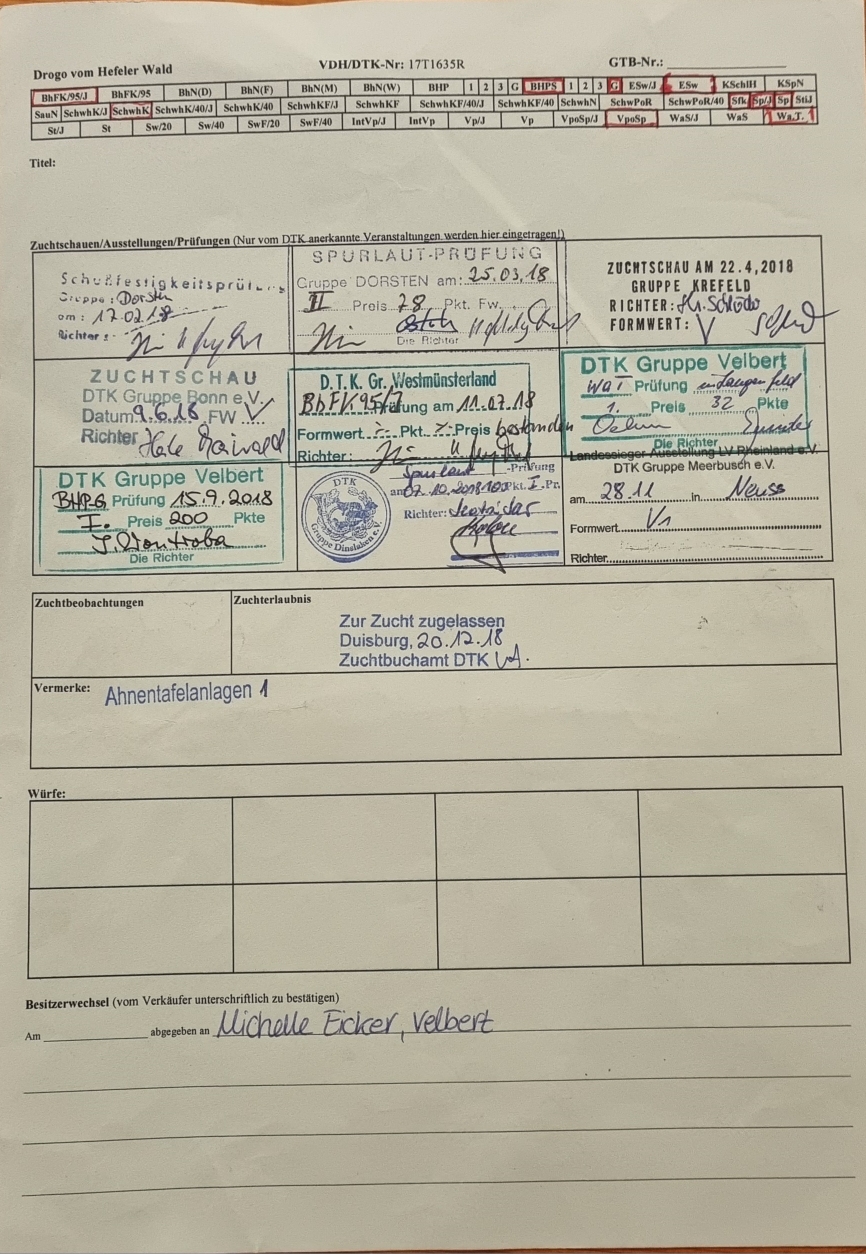 Drogo vom Hefeler Wald VDH/DTK-Nr: 17T1635R GTB-Nr.:
BhFK/95/J BhFK/95 BhN(D) BhN(F) BhN(M) BhN(W) BHP 1 2 3 G BHPS 1 2 3 G ESw/J ESw KSchlH KSpN
SauN SchwhK/J SchwhK SchwhK/40/J SchwhK/40 SchwhKF/J SchwhKF SchwhKF/40/J SchwhKF/40 SchwhN SchwPoR SchwPoR/40 Sfk Sp/J Sp StiJ
St/J St Sw/20 Sw/40 SwF/20 SwF/40 IntVp/J IntVp Vp/J Vp VpoSp/J VpoSp WaS/J WaS Wa.T.
Titel:
Zuchtschauen/Ausstellungen/Prüfungen (Nur vom DTK anerkannte Veranstaltungen werden hier eingetragen!)
Schußfestigkeitsprüfung
Gruppe: Dorsten
om: 17.02.18
Richter:
SPURLAUT-PRÜFUNG
Gruppe DORSTEN am: 25.03.18
II Preis 78 Pkt. Fw.
Die Richter
ZUCHTSCHAU AM 22.4,2018
GRUPPE KREFELD
RICHTER:
FORMWERT: V
ZUCHTSCHAU
DTK Gruppe Bonn e.V.
Datum 9.6.18 FW V
Richter
D.T.K. Gr. Westmünsterland
BhFK 95/J Prüfung am 11.07.18
Formwert -/- Pkt. -/- Preis bestanden
Richter:
DTK Gruppe Velbert
WaT Prüfung in Langenfeld
1. Preis 32 Pkte
Die Richter
DTK Gruppe Velbert
BHP-G Prüfung 15.9.2018
I. Preis 200 Pkte
Die Richter
DTK
Gruppe Dinslaken e.V.
Spurlaut -Prüfung
am 07.10.2018 100 Pkt. I-Pr.
Richter:
Landessieger Ausstellung LV Rheinland e.V.
DTK Gruppe Meerbusch e.V.
am 28.11 in Neuss
Formwert V1
Richter
Zuchtbeobachtungen
Zuchterlaubnis
Zur Zucht zugelassen
Duisburg, 20.12.18
Zuchtbuchamt DTK
Vermerke: Ahnentafelanlagen 1
Würfe:
Besitzerwechsel (vom Verkäufer unterschriftlich zu bestätigen)
Am abgegeben an Michelle Eicker, Velbert